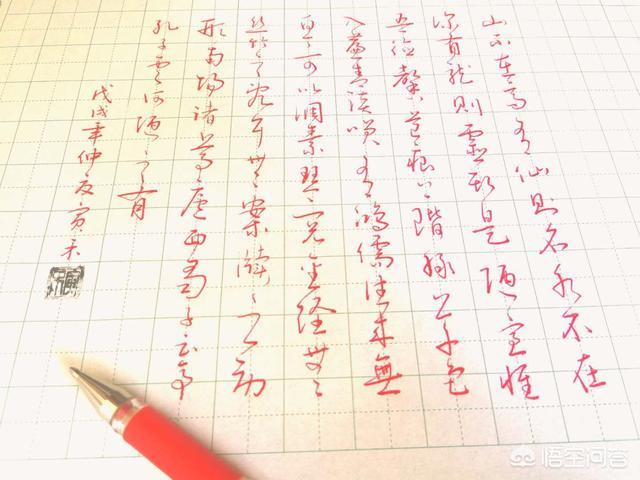 山不在高有仙則名水不在
深有龍則靈斯是陋室惟
吾德馨苔痕上階綠草色
入簾青談笑有鴻儒往來無
白丁可以調素琴閱金經無
絲竹之亂耳無案牘之勞
形南陽諸葛廬西蜀子雲亭
孔子云何陋之有
戊戌年仲夏
悟空问答